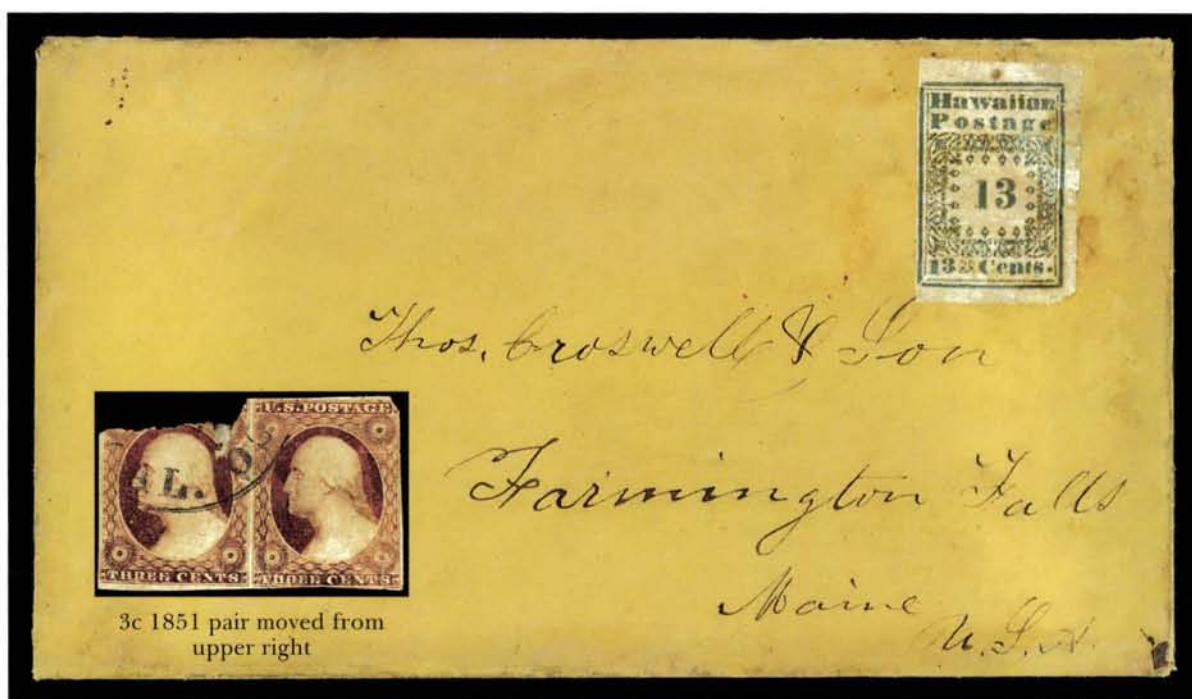 Hawaiian
Postage
13
13 Cents.
Thos. Croswell & Son
Farmington Falls
Maine
U.S.A.
U.S. POSTAGE
AL.
THREE CENTS THREE CENTS
3c 1851 pair moved from
upper right